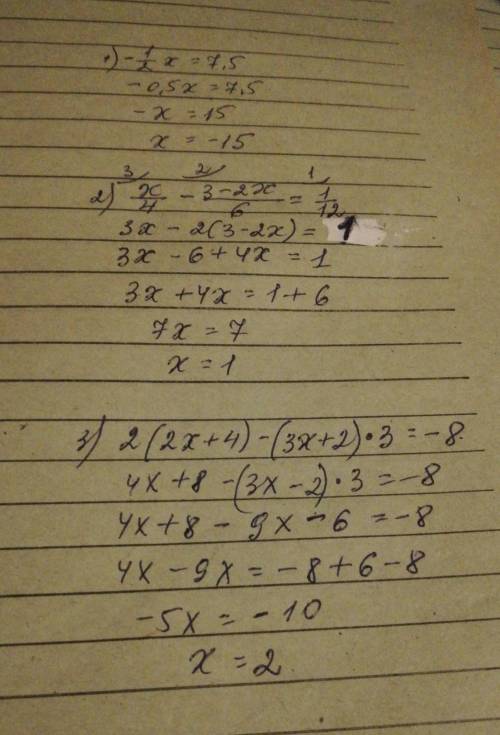 1) -1/2 x = 7,5
-0,5x = 7,5
-x = 15
x = -15
3 2 1
2) x/4 - 3-2x/6 = 1/12
3x - 2(3-2x) = 1
3x - 6 + 4x = 1
3x + 4x = 1 + 6
7x = 7
x = 1
3) 2(2x+4)-(3x+2)·3=-8
4x+8-(3x-2)·3=-8
4x+8-9x-6=-8
4x-9x=-8+6-8
-5x=-10
x=2